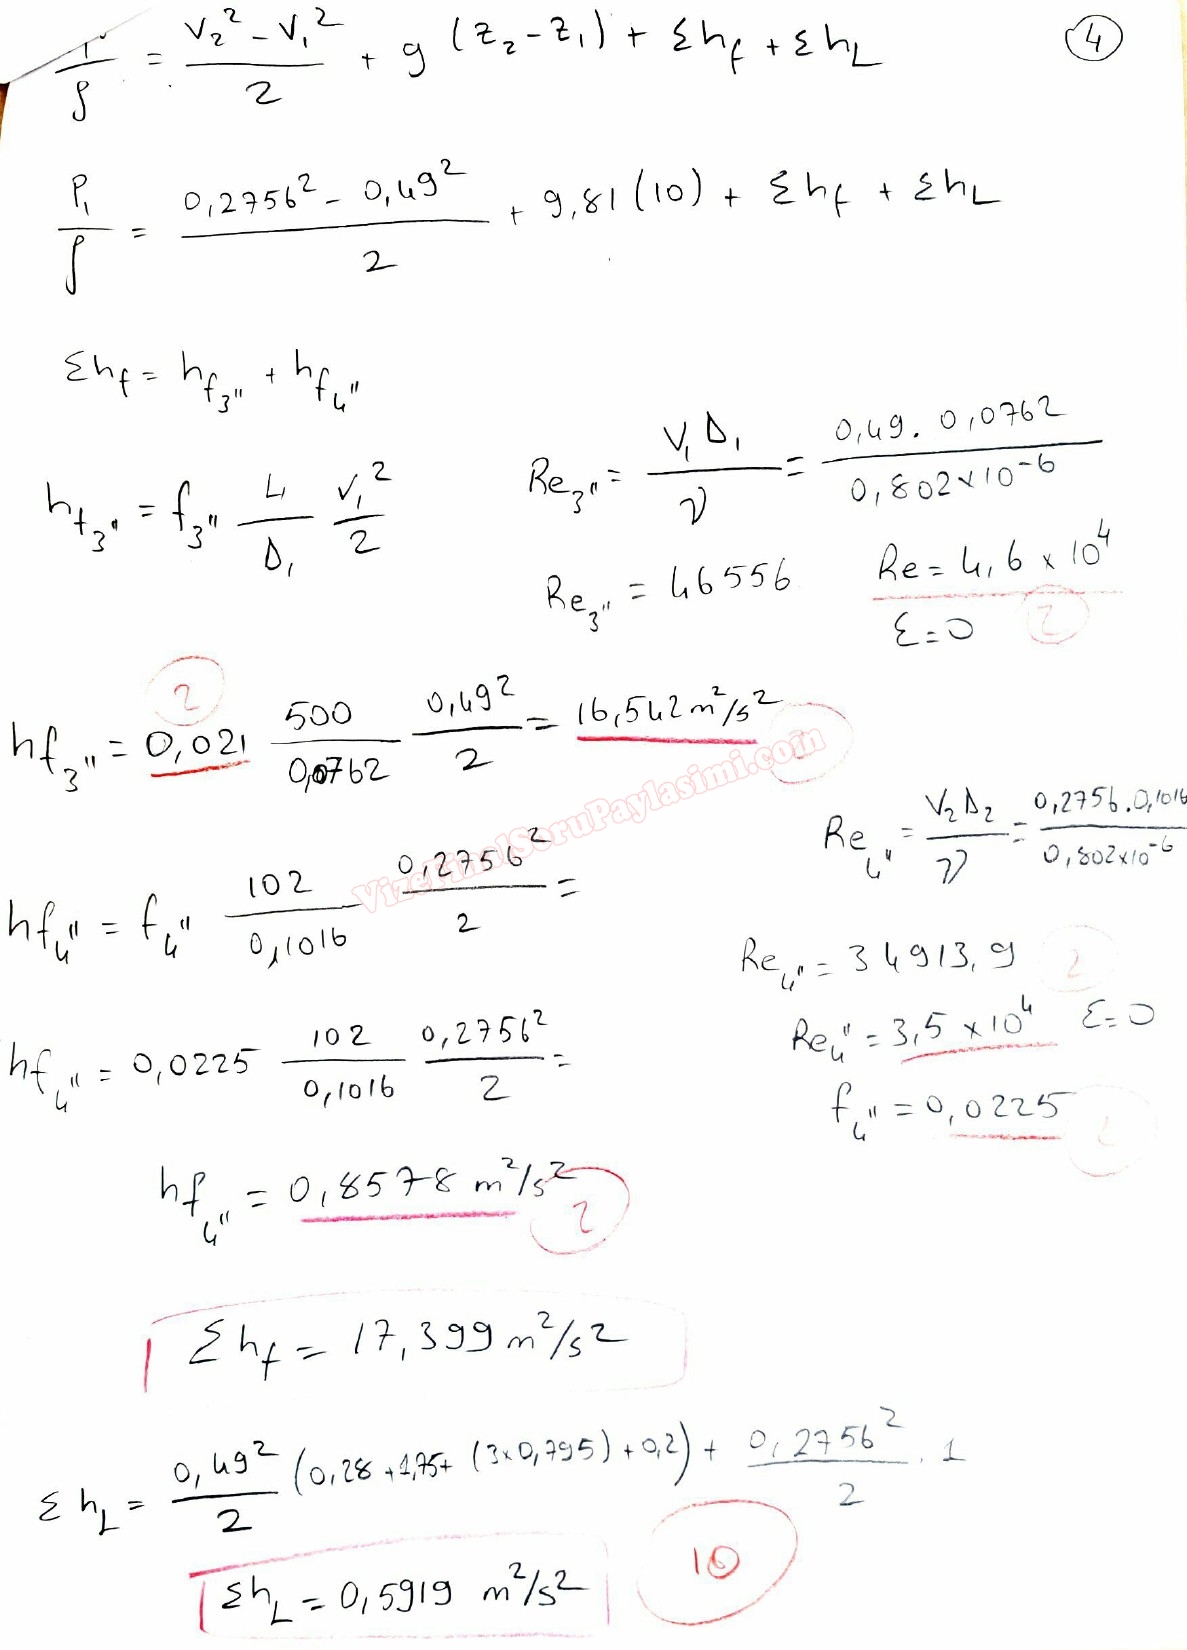 ④
P₁/ρ = (V₂² - V₁²)/2 + g (z₂ - z₁) + Σhf + ΣhL
P₁/ρ = (0,2756² - 0,49²)/2 + 9,81 (10) + Σhf + ΣhL
Σhf = hf3" + hf4"
hf3" = f3" L1/D₁ V₁²/2
Re3" = V₁D₁/ν = 0,49 . 0,0762 / 0,802×10⁻⁶
Re3" = 46556 Re = 4,6 × 10⁴
ε = 0 2
2
hf3" = 0,021 500/0,0762 0,49²/2 = 16,542 m²/s²
VizeFinalSoruPaylasimi.com
Re4" = V₂D₂/ν = 0,2756 . 0,1016 / 0,802×10⁻⁶
hf4" = f4" 102/0,1016 0,2756²/2 =
Re4" = 34913,9 2
Re4" = 3,5 × 10⁴ ε = 0
hf4" = 0,0225 102/0,1016 0,2756²/2 =
f4" = 0,0225 2
hf4" = 0,8578 m²/s² 2
Σhf = 17,399 m²/s²
ΣhL = 0,49²/2 (0,28 + 1,75 + (3×0,795) + 0,2) + 0,2756²/2 . 1
ΣhL = 0,5919 m²/s² 10